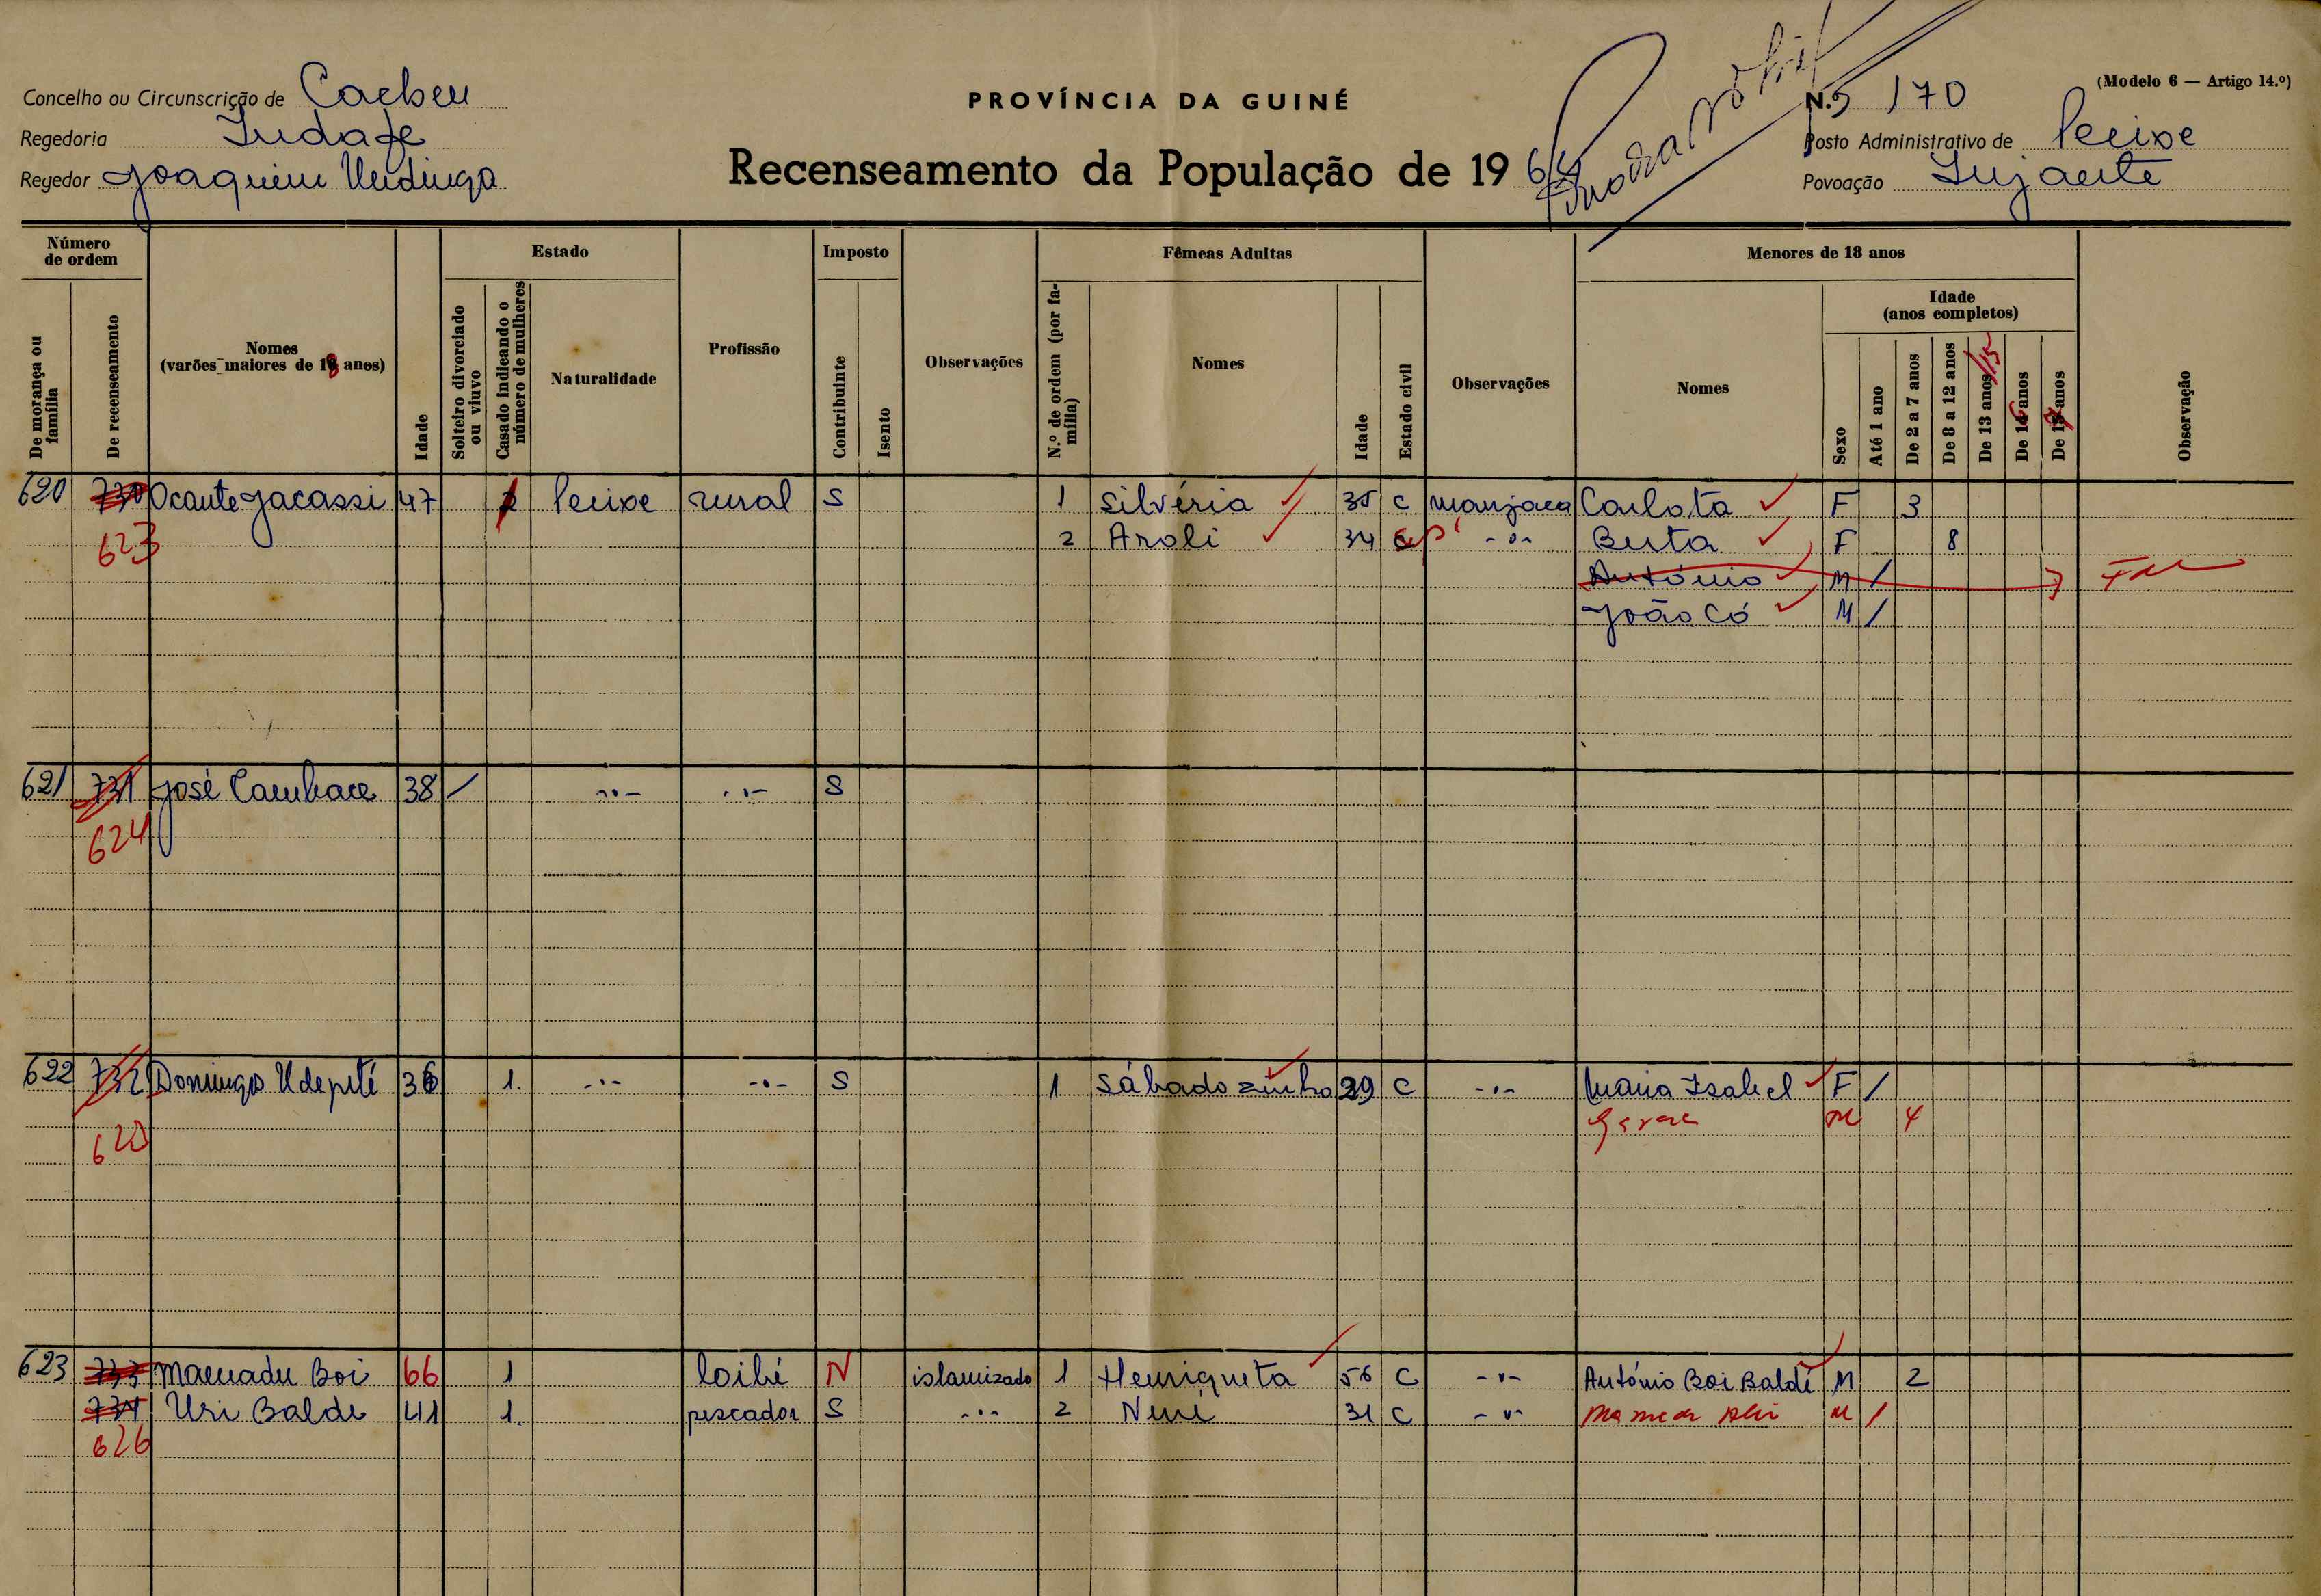 (Modelo 6 — Artigo 14.º)
Concelho ou Circunscrição de Cacheu
PROVÍNCIA DA GUINÉ
N.º 170
Regedoria
Posto Administrativo de Pecixe
Regedor Joaquim
Recenseamento da População de 1964
Povoação
Número de ordem
Estado
Imposto
Fêmeas Adultas
Menores de 18 anos
De morança ou família
De recenseamento
Nomes (varões maiores de 18 anos)
Idade
Solteiro divorciado ou viuvo
Casado indicando o número de mulheres
Naturalidade
Profissão
Contribuinte
Isento
Observações
N.º de ordem (por família)
Nomes
Idade
Estado civil
Observações
Nomes
Sexo
Idade (anos completos)
Até 1 ano
De 2 a 7 anos
De 8 a 12 anos
De 13 anos /15
De 16 anos
De 17 anos
Observação
620 730 Ocante Jacassi 47 Pecixe rural S 1 Silvéria 35 C manjaca Carlota F 3
623 2 Aroli 34 -"- Berta F 8
António M /
João Có M /
621 731 José 38 / -"- -"- S
624
622 732 Domingos 36 1. -"- -"- S 1 Sábado zinho 29 C -"- Maria Isabel F /
M 4
623 733 Mamadu Boi 66 1 N islamizado 1 Henriqueta 56 C -"- António Boi Baldé M 2
734 Uri Balde 41 1. pescador S -"- 2 Nene 31 C -"- M /
626